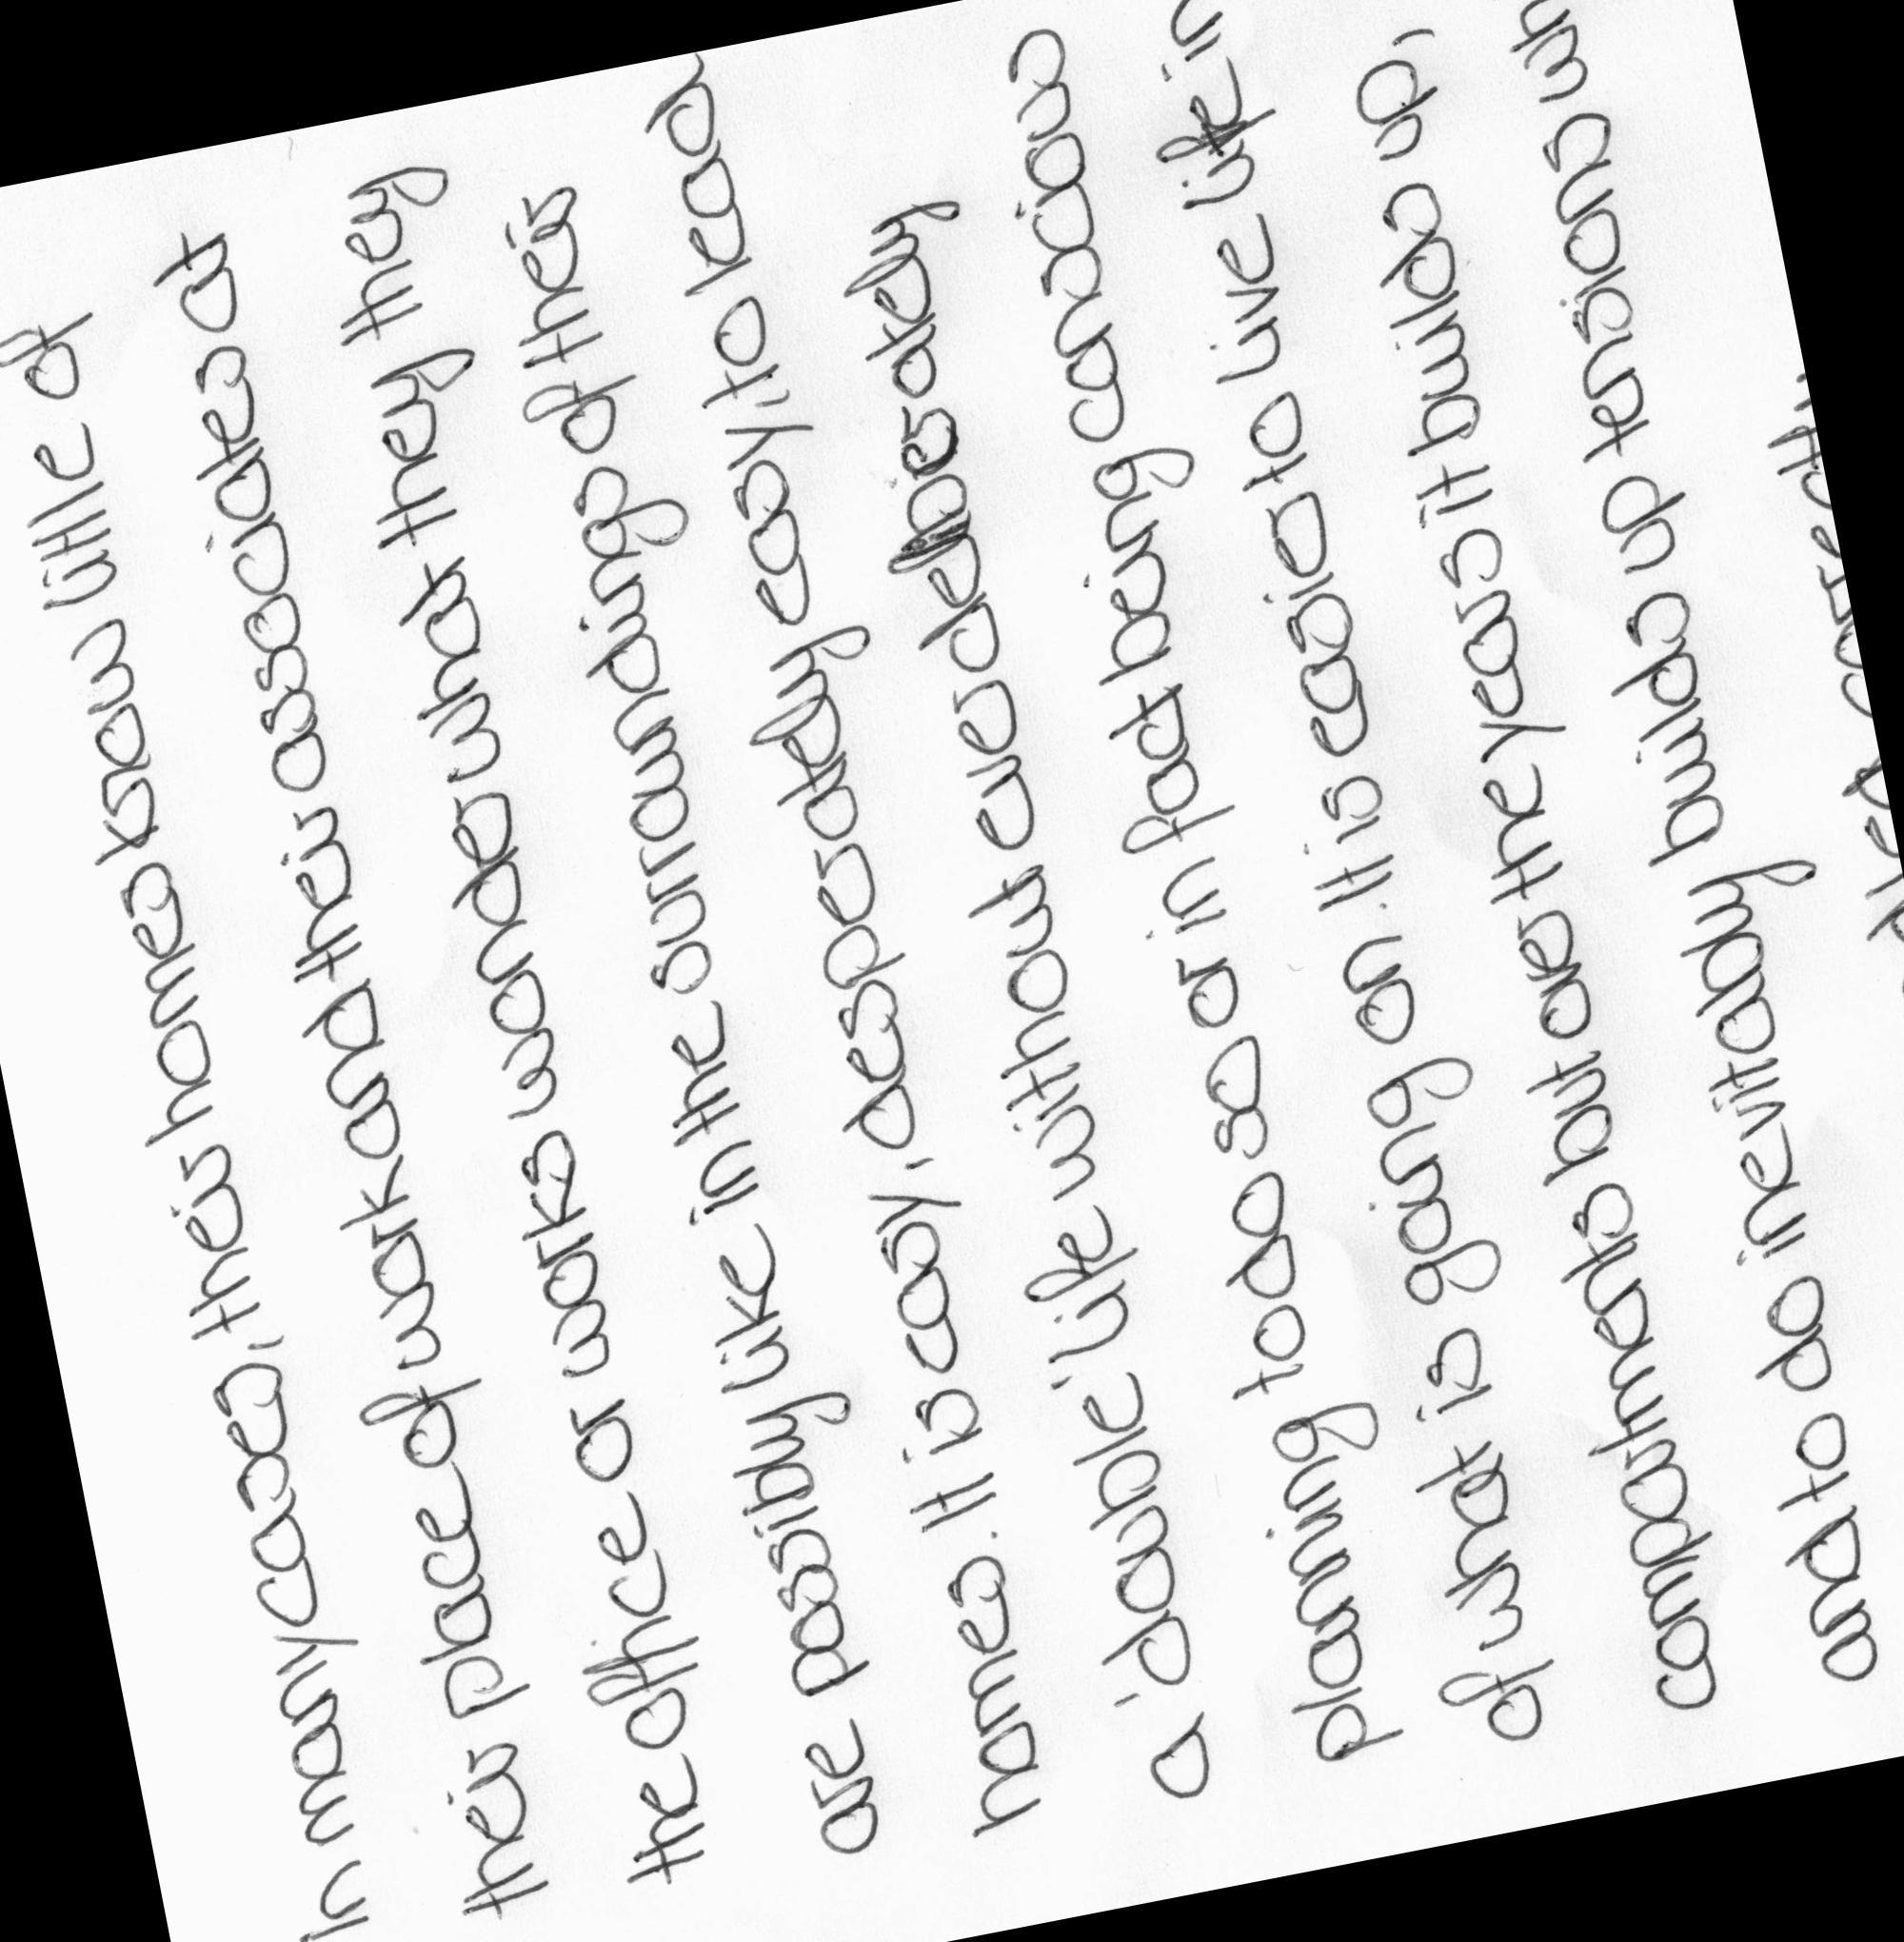 In many cases, their homes know little of
their place of work and their associates at
the office or works wonder what they they
are possibly like in the surroundings of their
homes. It is easy, desperately easy, to lead
a 'double' life without ever deliberately
planning to do so or in fact being conscious
of what is going on. It is easier to live life in
compartments but over the years it builds up,
and to do inevitably builds up tensions wh